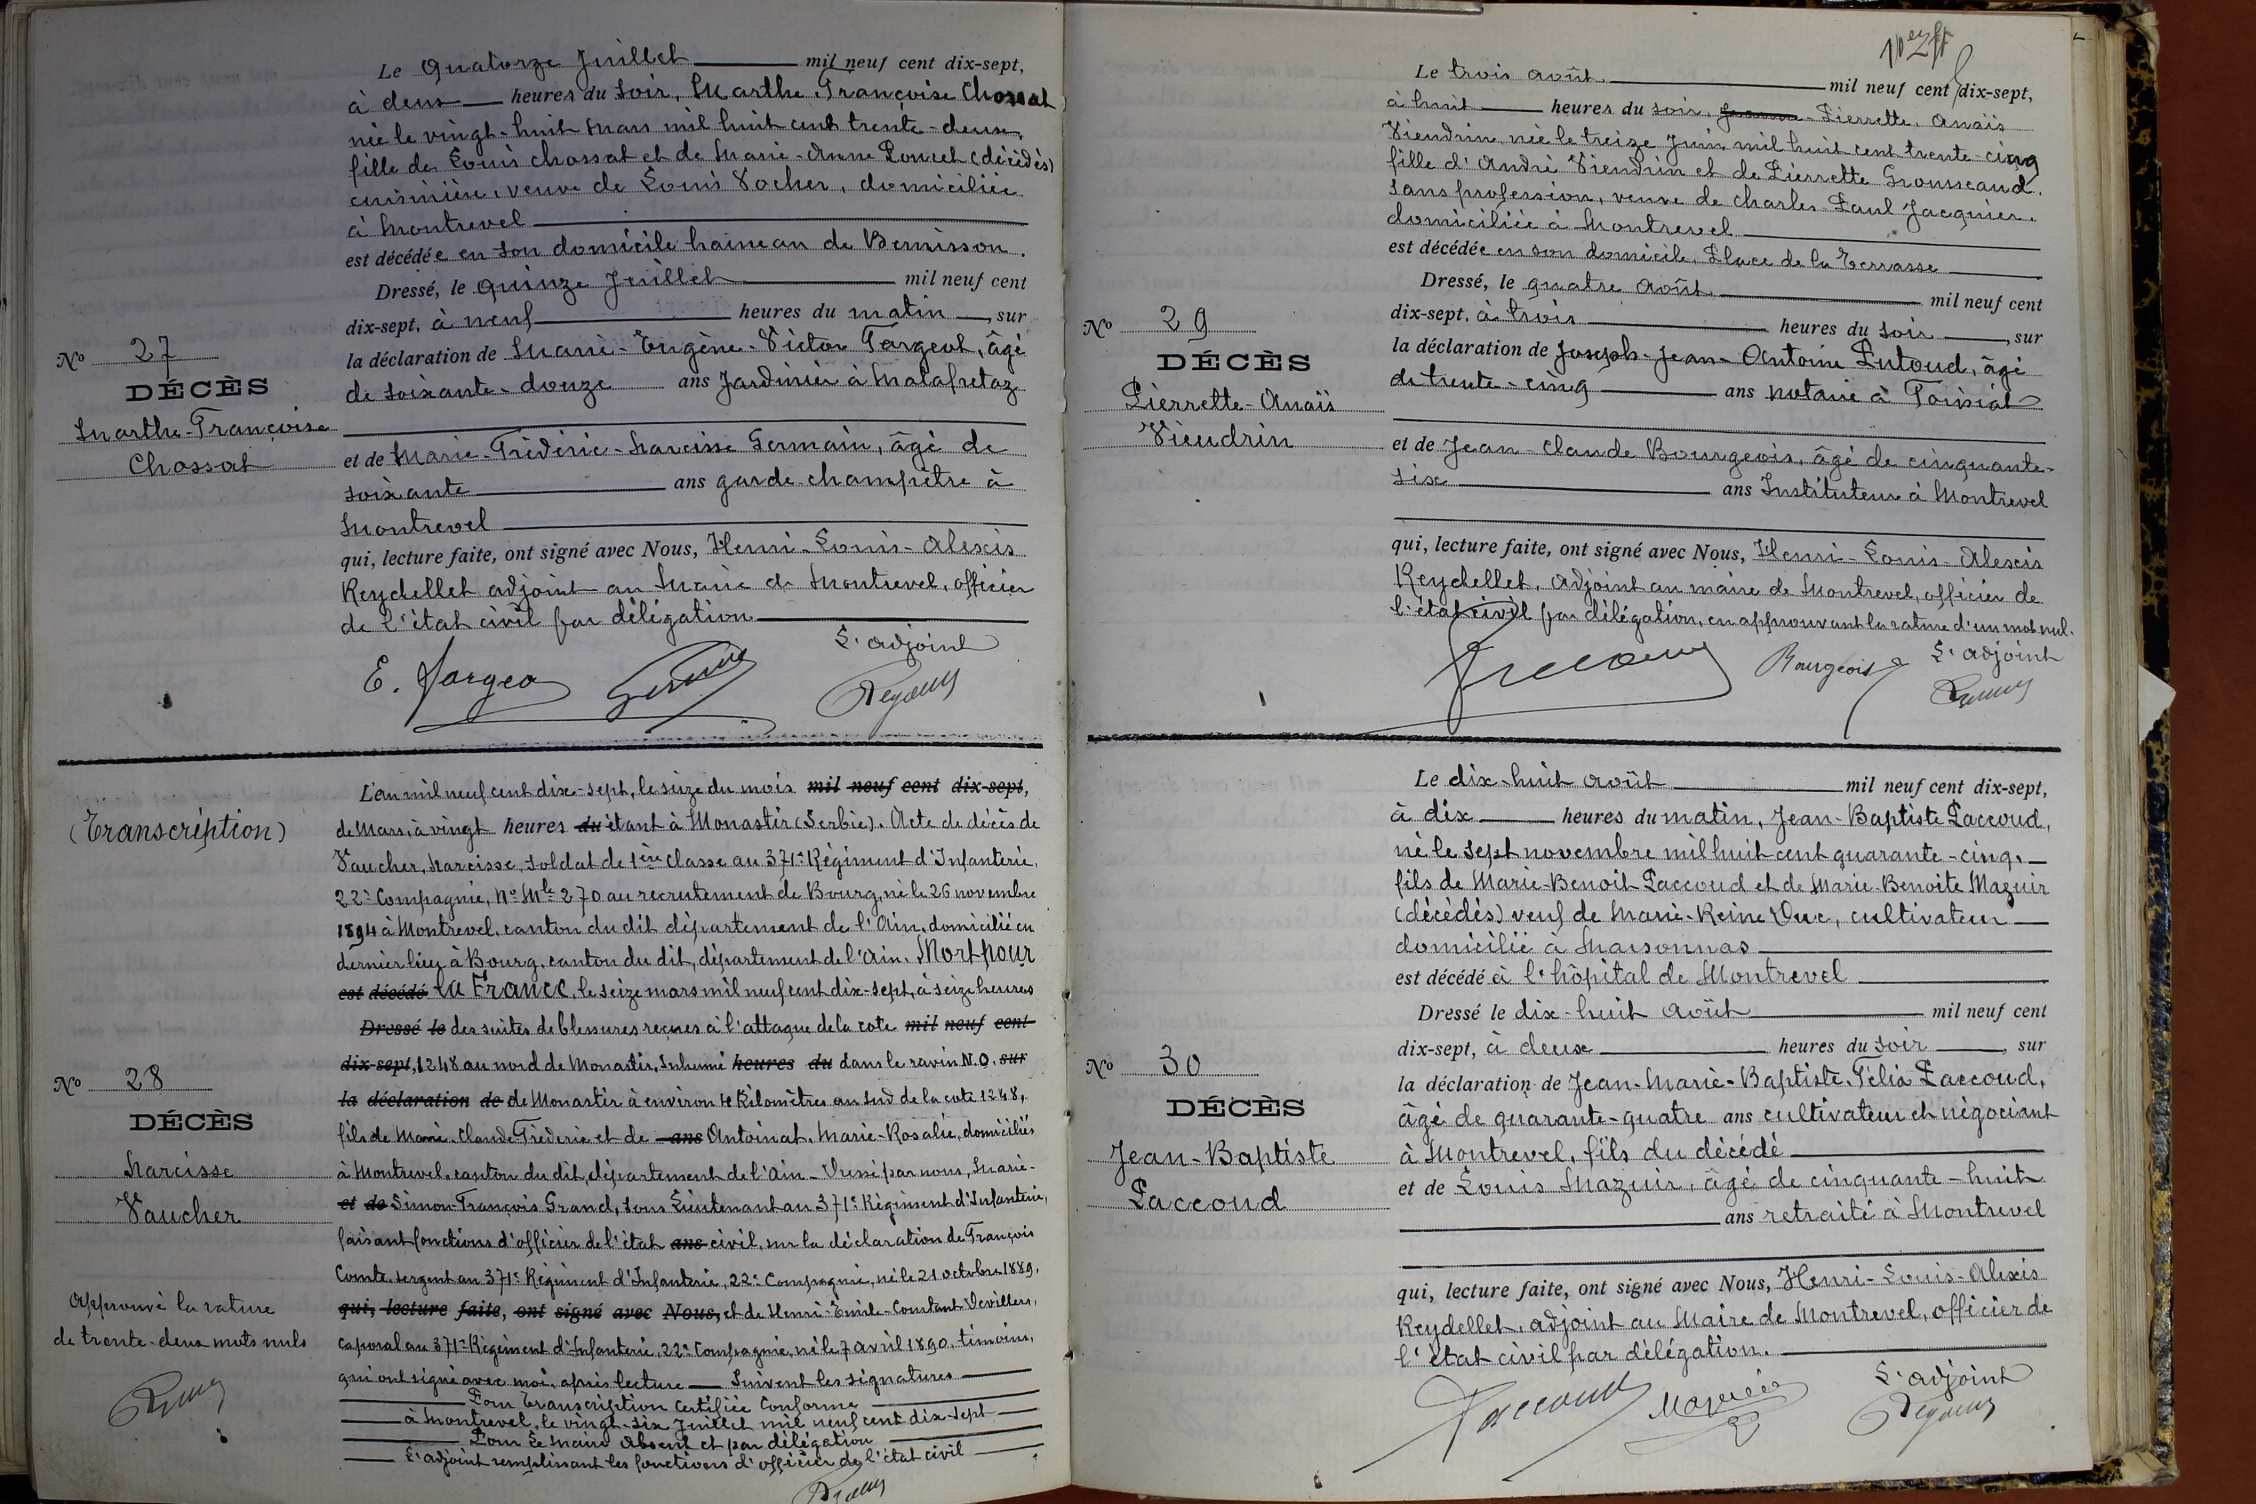 Le Quatorze Juillet mil neuf cent dix-sept,
à deux heures du soir, Marthe Françoise Chossat
née le vingt-huit Mars mil huit cent trente-deux,
fille de Louis Chossat et de Marie-Anne Poncet (décédés)
cuisinière, veuve de Louis Vocher, domiciliée
à Montrevel
est décédée en son domicile hameau de Bernisson.
Dressé, le quinze Juillet mil neuf cent
dix-sept, à neuf heures du matin, sur
la déclaration de Marie-Eugène-Victor Fargeot, âgé
de soixante-douze ans Jardinier à Malafretaz
et de Marie-Frédéric-Narcisse Germain, âgé de
soixante ans garde-champêtre à
Montrevel
qui, lecture faite, ont signé avec Nous, Henri-Louis-Alexis
Reydellet adjoint au Maire de Montrevel, officier
de l'état civil par délégation
L'adjoint
E. Fargeo
Nº 27
DÉCÈS
Marthe-Françoise
Chossat
(Transcription)
L'an mil neuf cent dix-sept, le seize du mois mil neuf cent dix-sept,
de Mars, à vingt heures du étant à Monastir (Serbie). Acte de décès de
Vaucher, Narcisse, soldat de 1ère classe au 371e Régiment d'Infanterie,
22e Compagnie, Nº Mle 270 au recrutement de Bourg, né le 26 novembre
1894 à Montrevel, canton du dit département de l'Ain, domicilié en
dernier lieu à Bourg, canton du dit, département de l'Ain. Mort pour
est décédé la France, le seize mars mil neuf cent dix-sept, à seize heures
Dressé le des suites de blessures reçues à l'attaque de la cote mil neuf cent
dix-sept, 1248 au nord de Monastir, Inhumé heures du dans le ravin N.O. sur
la déclaration de de Monastir à environ 4 Kilomètres au Sud de la cote 1248,
fils de Marie-Claude Frédéric et de ans Antoinat, Marie-Rosalie, domiciliés
à Montrevel, canton du dit, département de l'Ain - Dressé par nous, Marie-
et de Simon-François Grand, sous Lieutenant au 371e Régiment d'Infanterie,
faisant fonctions d'officier de l'état ans civil, sur la déclaration de François
Comte, sergent au 371e Régiment d'Infanterie, 22e Compagnie, né le 21 octobre 1889,
qui, lecture faite, ont signé avec Nous, et de Henri-Emile-Constant Devillers,
caporal au 371e Régiment d'Infanterie, 22e Compagnie, né le 7 avril 1890, témoins,
qui ont signé avec moi, après lecture Suivent les signatures
Pour Transcription certifiée Conforme
à Montrevel, le vingt-six Juillet mil neuf cent dix-sept
Pour Le Maire Absent et par délégation
L'adjoint remplissant les fonctions d'officier de l'état civil
Nº 28
DÉCÈS
Narcisse
Vaucher
Approuvé la rature
de trente-deux mots nuls
Le trois août mil neuf cent dix-sept,
à huit heures du soir, Pierrette, Anaïs
Vieudrin, née le treize Juin mil huit cent trente-cinq
fille d'André Vieudrin et de Pierrette Grousseaud.
sans profession, veuve de Charles-Paul Jacquier.
domiciliée à Montrevel
est décédée en son domicile, Place de la Terrasse
Dressé, le quatre Août mil neuf cent
dix-sept, à trois heures du soir, sur
la déclaration de Joseph-Jean-Antoine Putoud, âgé
de trente-cinq ans notaire à Foissiat
et de Jean-Claude Bourgeois, âgé de cinquante-
six ans Instituteur à Montrevel
qui, lecture faite, ont signé avec Nous, Henri-Louis-Alexis
Reydellet, adjoint au maire de Montrevel, officier de
l'état civil par délégation, en approuvant la rature d'un mot nul.
Bourgeois
L'adjoint
Nº 29
DÉCÈS
Pierrette-Anaïs
Vieudrin
Le dix-huit août mil neuf cent dix-sept,
à dix heures du matin, Jean-Baptiste Paccoud,
né le sept novembre mil huit cent quarante-cinq,
fils de Marie-Benoit Paccoud et de Marie-Benoite Mazuir
(décédés) veuf de Marie-Reine Duc, cultivateur
domicilié à Marsonnas
est décédé à l'hôpital de Montrevel
Dressé le dix-huit Août mil neuf cent
dix-sept, à deux heures du soir, sur
la déclaration de Jean-Marie-Baptiste Félix Paccoud,
âgé de quarante-quatre ans cultivateur et négociant
à Montrevel, fils du décédé
et de Louis Mazuir, âgé de cinquante-huit
ans retraité à Montrevel
qui, lecture faite, ont signé avec Nous, Henri-Louis-Alexis
Reydellet, adjoint au Maire de Montrevel, officier de
l'état civil par délégation.
L'adjoint
Paccoud
Nº 30
DÉCÈS
Jean-Baptiste
Paccoud